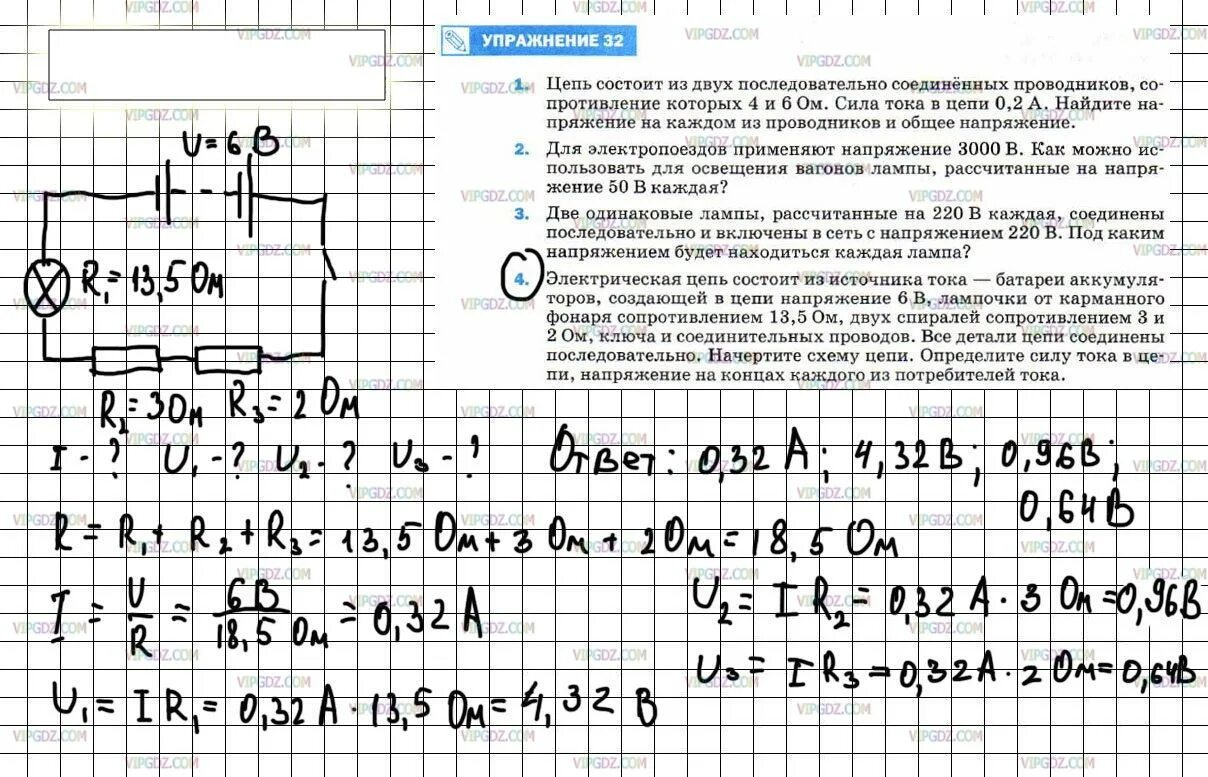 УПРАЖНЕНИЕ 32
1. Цепь состоит из двух последовательно соединённых проводников, со-
противление которых 4 и 6 Ом. Сила тока в цепи 0,2 А. Найдите на-
пряжение на каждом из проводников и общее напряжение.
2. Для электропоездов применяют напряжение 3000 В. Как можно ис-
пользовать для освещения вагонов лампы, рассчитанные на напря-
жение 50 В каждая?
3. Две одинаковые лампы, рассчитанные на 220 В каждая, соединены
последовательно и включены в сеть с напряжением 220 В. Под каким
напряжением будет находиться каждая лампа?
4. Электрическая цепь состоит из источника тока — батареи аккумуля-
торов, создающей в цепи напряжение 6 В, лампочки от карманного
фонаря сопротивлением 13,5 Ом, двух спиралей сопротивлением 3 и
2 Ом, ключа и соединительных проводов. Все детали цепи соединены
последовательно. Начертите схему цепи. Определите силу тока в це-
пи, напряжение на концах каждого из потребителей тока.
U = 6 В
R₁ = 13,5 Ом
R₂ = 3 Ом R₃ = 2 Ом
I - ? U₁ - ? U₂ - ? U₃ - ?
Ответ: 0,32 А; 4,32 В; 0,96 В;
0,64 В
R = R₁ + R₂ + R₃ = 13,5 Ом + 3 Ом + 2 Ом = 18,5 Ом
I = U/R = 6 В/18,5 Ом = 0,32 А
U₁ = I R₁ = 0,32 А · 13,5 Ом = 4,32 В
U₂ = I R₂ = 0,32 А · 3 Ом = 0,96 В
U₃ = I R₃ = 0,32 А · 2 Ом = 0,64 В
VIPGDZ.COM